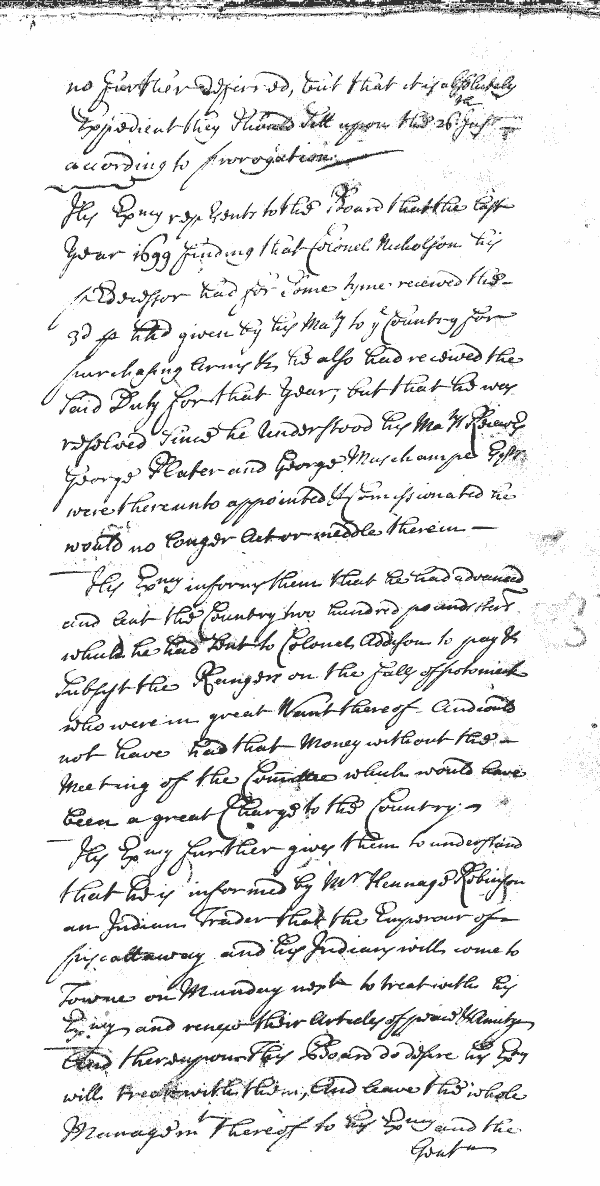 no further deferred, but that it is absolutely
Expedient they should sitt upon the 26th Inst
according to prorogation.
His Exncy represents to the Board that the last
Year 1699 finding that Colonel Nicholson his
predecessor had for some tyme received the
3d p hhd given by his Maty to ye Country for
purchasing Arms &c he also had received the
said Duty for that Year, but that he was
resolved since he understood his Matys Receivrs
George Plater and George Muschampe Esqrs
were thereunto appointed & Comissionated he
would no longer Act or meddle therein
His Exncy informs them that he had advanced
and lent the Country two hundred pounds sterl
which he had sent to Colonel Addison to pay &
subsist the Rangers on the falls of potomack
who were in great Want thereof And could
not have had that Money without the
Meeting of the Comittee which would have
been a great Charge to the Country.
His Exncy further gives them to understand
that he is informed by Mr Hennage Robinson
an Indian Trader that the Emperour of
piscattaway and his Indians will come to
Towne on Munday next to treat with his
Exncy and renew their Articles of peace & Amity
And thereupon this Board do desire his Exncy
will treat with them, And leave the whole
Managemt thereof to his Exncy and the
Gentn